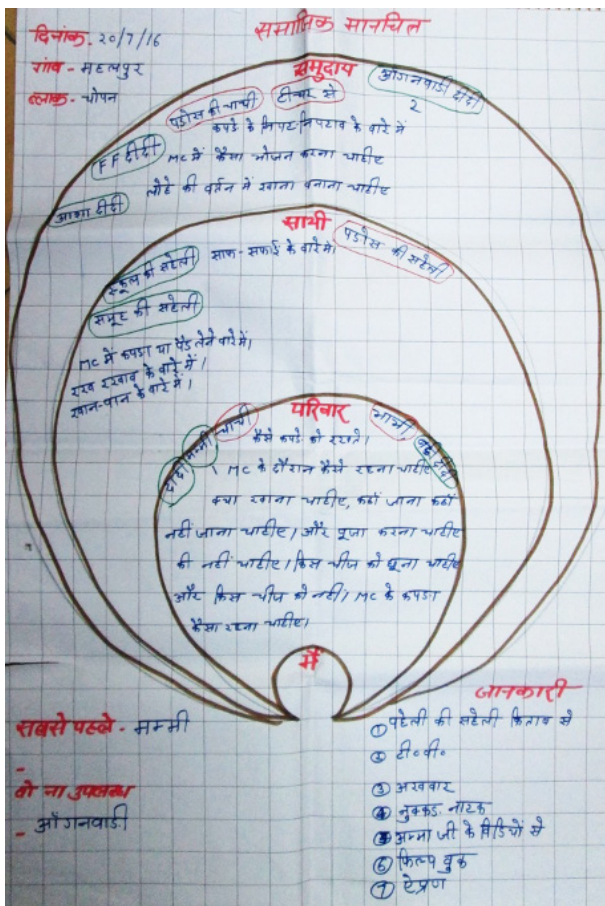 समाजिक मानचित्र
दिनांक. 20/7/16
गांव - महलपुर
ब्लाक - चोपन
समुदाय
आँगनवाडी दीदी
2
पडोस की चाची
टीचर से
कपडे के निपटान के बारे में
FF दीदी
MC में कैसा भोजन करना चाहीए
लोहे की बर्तन में खाना बनाना चाहीए
आशा दीदी
साथी
पडोस की सहेली
स्कूल की सहेली
साफ-सफाई के बारे में।
समूह की सहेली
MC में कपडा या पैड लेने बारे में।
रख रखाव के बारे में।
खान-पान के बारे में।
परिवार
दीदी
मम्मी
चाची
भाभी,
बडी दीदी
कैसे कपडे को रखते।
MC के दौरान कैसे रहना चाहीए
क्या खाना चाहीए, कहाँ जाना कहाँ
नहीं जाना चाहीए। और पूजा करना चाहीए
की नहीं चाहीए। किस चीज को छूना चाहीए
और किस चीज को नहीं। MC के कपडा
कैसा रहना चाहीए।
मैं
सबसे पहले - मम्मी
-
वो ना उपलब्ध
- आँगनवाडी
जानकारी
① पहेली की सहेली किताब से
② टी०वी०
③ अखबार
④ नुक्कड नाटक
⑤ अम्मा जी के विडियों से
⑥ फिल्प बुक
⑦ ऐप्रण